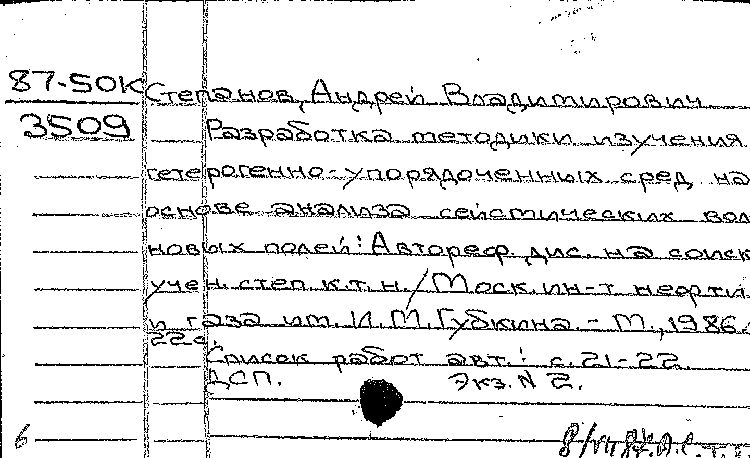 87-50К Степанов, Андрей Владимирович
3509 Разработка методики изучения
гетерогенно-упорядоченных сред на
основе анализа сейсмических вол
новых полей: Автореф. дис. на соиск
учен. степ. к.т.н. / Моск. ин-т нефти
и газа им. И.М. Губкина. - М., 1986.
22 с.
Список работ авт.: с. 21-22.
ДСП. Экз. N 2.
6